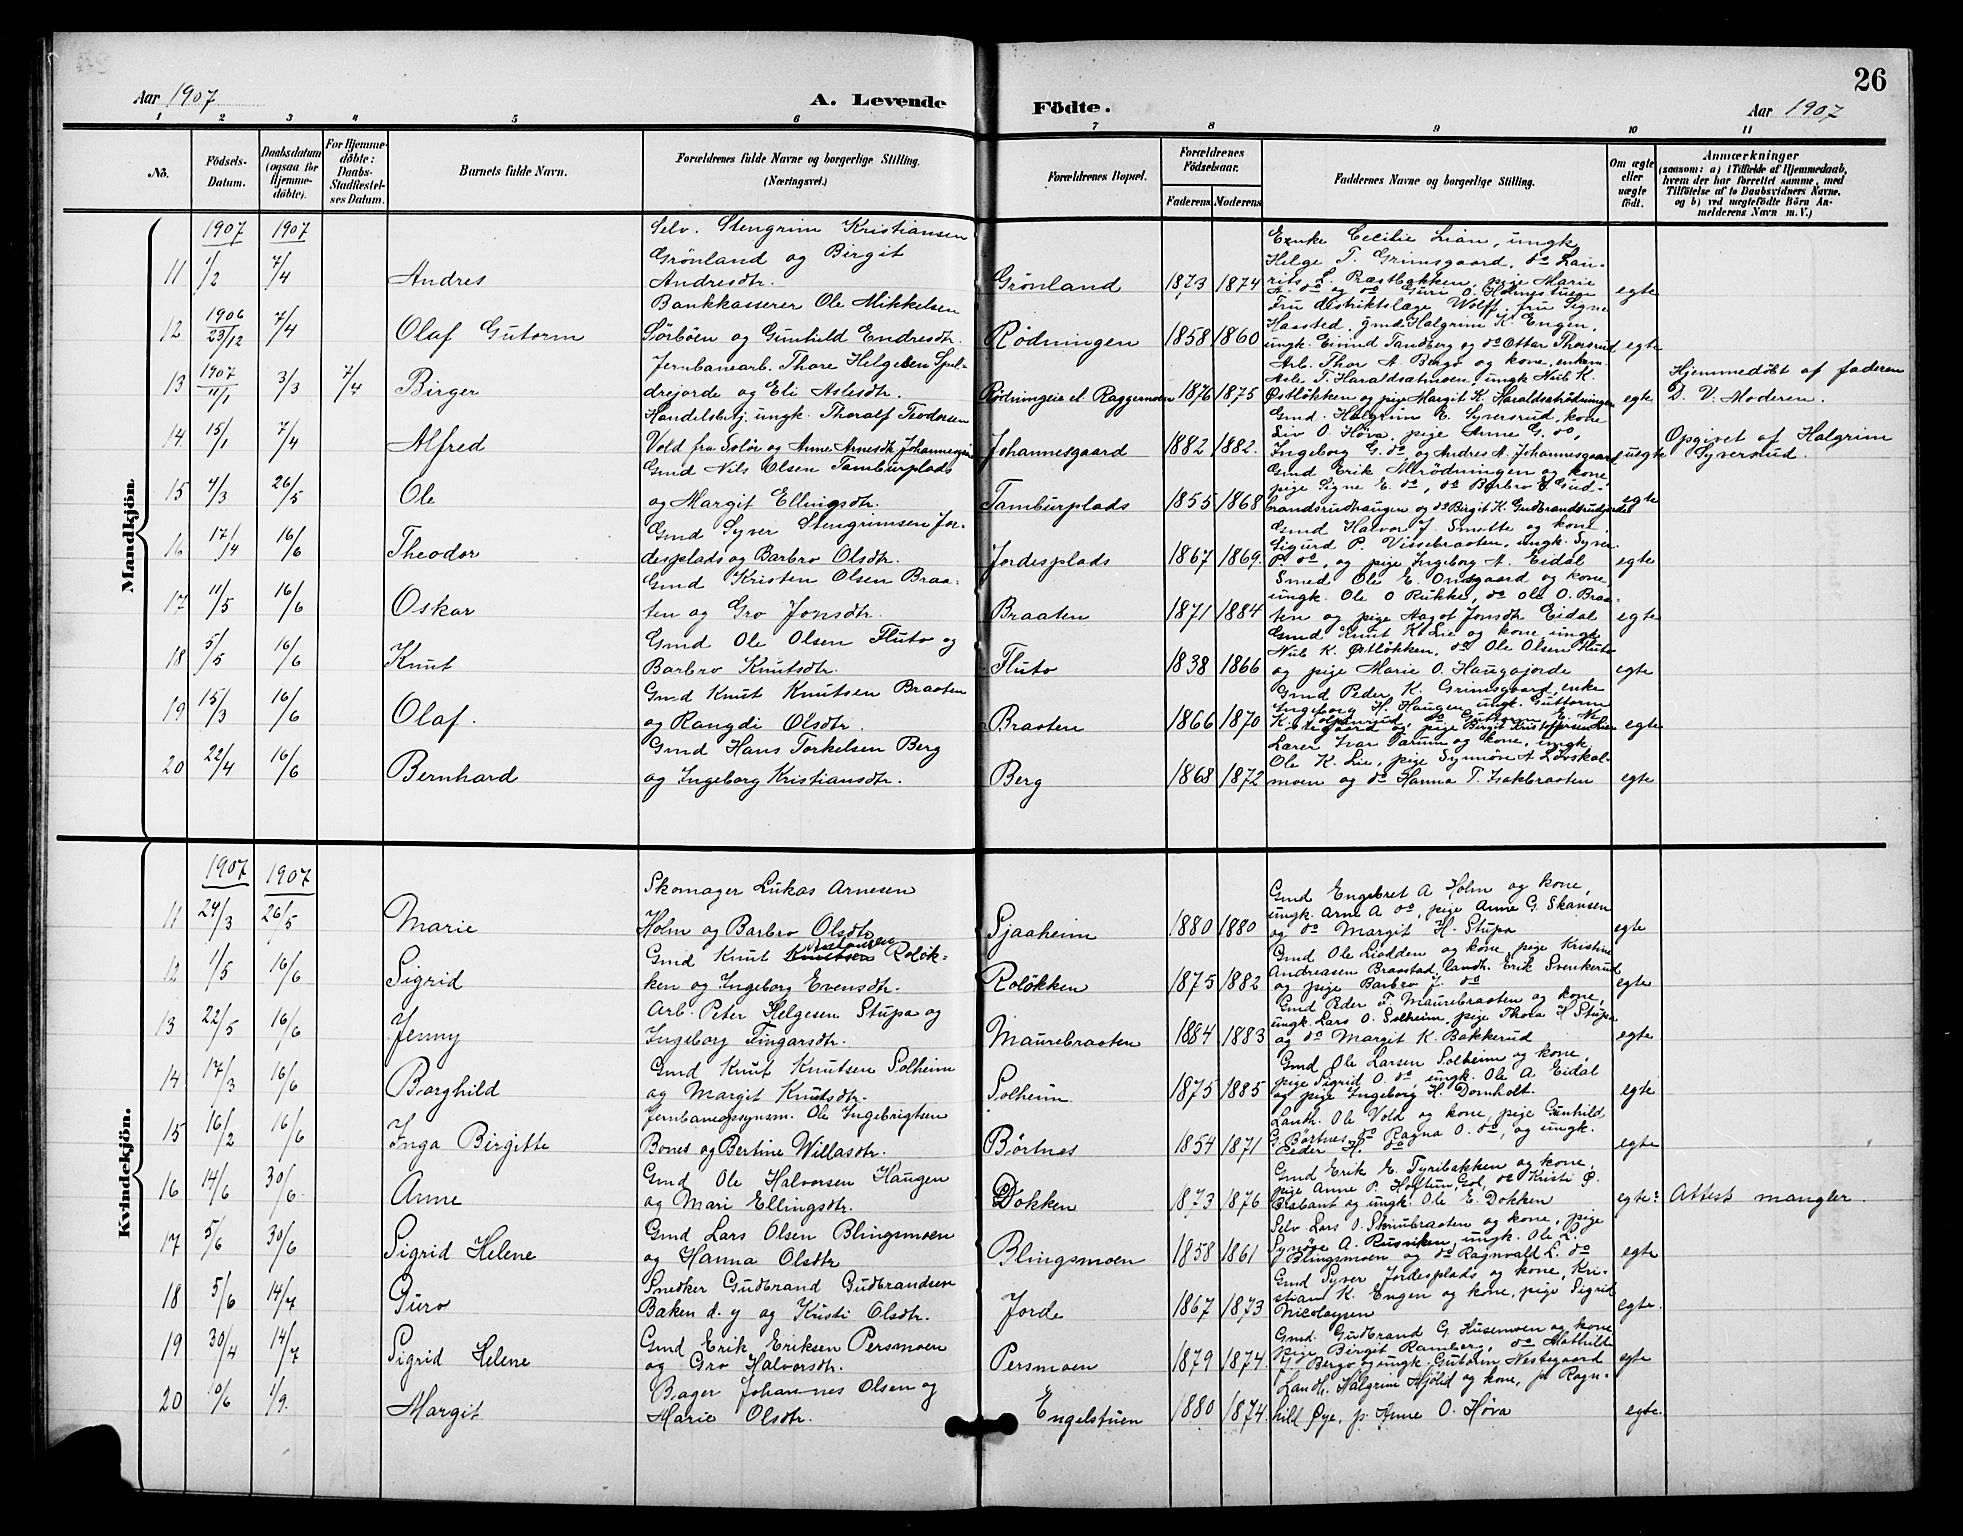 26
Aar 1907
A. Levende
Födte.
Aar 1907
1 2 3 4 5 6 7 8 9 10 11
No.
Födsels-Datum.
Daabsdatum (ogsaa for Hjemmedöbte).
For Hjemmedöbte: Daabs-Stadfæstelses Datum.
Barnets fulde Navn.
Forældrenes fulde Navne og borgerlige Stilling. (Næringsvei.)
Forældrenes Bopæl.
Forældrenes Födselsaar.
Faderens Moderens
Faddernes Navne og borgerlige Stilling.
Om ægte eller uægte födt.
Anmærkninger
(saasom: a) i Tilfælde af Hjemmedaab, hvem der har forrettet samme, med Tilföielse af to Daabsvidners Navne, og b) ved uægtefödte Börn Anmelderens Navn m. V.)
Mandkjön
1907 1907
11 1/2 7/4 Andres
Selv. Stengrim Kristiansen
Grönland og Birgit
Andresdtr.
Grönland 1873 1874
Enke Cecilie Lian, ungk.
Helge T. Grimsgaard, do Lau-
rits L. Bræstbakken, pige Marie
A. do og do Guri O. Holmestuen
egte
12 1906 23/12 7/4 Olaf Gutorm
Bankkasserer Ole Mikkelsen
Sörböen og Gunhild Endresdtr.
Rödningen 1858 1860
Fru distriktslæge Wolff, fru Signe
Haasted, gmd Halgrim K. Engen,
ungk. Eivind Tandberg og do Ottar Thorsrud
egte
13 1907 11/1 3/3 7/4 Birger
Jernbanearb. Thore Helgesen Spel-
drejorde og Eli Aslesdtr.
Rödningeie el. Raggermoen 1876 1875
Arb. Thor A Bergo og kone, enkem.
Asle T. Haraldsatmoen, ungk Nub K.
Östlökken og pige Margit K. Haraldsetrödningen
egte
Hjemmedöbt af faderen
D. V. Moderen.
14 15/1 7/4 Alfred
Handelsbetj. ungk. Thoralf Teodorsen
Vold fra Solör og Anne Arnesdtr. Johannesgaard
Johannesgaard 1882 1882.
Gmd. Halgrim E. Syversrud, kone
Liv O. Höva, pige Anne G. do,
Ingeborg G. do, og Andres A. Johannesgaard
uegte
Opgivet af Halgrim
Syversrud.
15 4/3 26/5 Ole
Gmd Nils Olsen Tamburplads
og Margit Ellingsdtr.
Tamburplads 1855 1868
Gmd Erik Nilrödningen og kone,
pige Signe E. do, do Barbro E Gud-
brandsrudhaugen og do Birgit K. Gudbrandsrudjordet
egte
16 17/4 16/6 Theodor
Gmd Syver Stengrimsen Jor-
desplads og Barbro Olsdtr.
Jordesplads 1867 1869.
Gmd Halvor J. Smette og kone
Sigurd P. Vissebraaten, ungk. Syver
P. do, og pige Ingeborg A. Eidal
egte
17 11/5 16/6 Oskar
Gmd Kristen Olsen Braa-
ten og Gro Jonsdtr.
Braaten 1871 1884
Smed Ole E. Omsgaard og kone,
ungk. Ole O Rukke, do Ole O. Braa-
ten og pige Aagot Jonsdtr Eidal
egte
18 5/5 16/6 Knut
Gmd Ole Olsen Fluto og
Barbro Knutsdtr.
Fluto 1838 1866
Gmd Knut K. Lie og kone, ungk
Nub K. Östlökken, do Ole Olsen Fluto
og pige Marie O. Haugajorde
egte
19 15/3 16/6 Olaf.
Gmd Knut Knutsen Braaten
og Rangdi Olsdtr.
Braaten 1866 1870
Gmd Peder K. Grimsgaard, enke
Ingeborg H. Haugen ungk. Guttorm
egte
20 22/4 16/6 Bernhard
Gmd Hans Torkelsen Berg
og Ingeborg Kristiansdtr.
Berg 1868 1872
Lærer Ivar Parum og kone, ungk
Ole K. Lie, pige Synnöve A Lövskal-
moen og do Hanna T. Isakbraaten
egte
Kvindekjön.
1907 1907
11 24/3 26/5 Marie
Skomager Lukas Arnesen
Holm og Barbro Olsdtr.
Sjaaheim 1880 1880
Gmd Engebret A Holm og kone,
ungk. Arne A do, pige Anne G. Skansen
og do Margit H. Stupa
egte
12 1/5 16/6 Sigrid
Gmd Knut Knutsen Rolök-
ken og Ingeborg Evensdtr.
Rolökken 1875 1882
Gmd Ole Liodden og kone, pige Kristine
Andreasen Braastad, landh. Erik Svenkerud
og pige Barbro J. do
egte
13 22/5 16/6 Jenny
Arb. Peter Helgesen Stupa og
Ingeborg Fingarsdtr.
Maurebraaten 1884 1883
Gmd Peder F. Maurebraaten og kone,
ungk. Lars O. Solheim, pige Thora H Stupa
og do Margit K. Bakkerud
egte
14 17/3 16/6 Borghild
Gmd Knut Knutsen Solheim
og Margit Knutsdtr.
Solheim 1875 1885
Gmd Ole Larsen Solheim og kone,
pige Sigrid O. do, ungk. Ole A Eidal
og pige Ingeborg H. Domholt.
egte
15 16/2 16/6 Inga Birgitte
Jernbaneopsynsm. Ole Ingebrigtsen
Bones og Bertine Willasdtr.
Börtnes 1854 1871
Landh. Ole Vold og kone, pige Gunhild
G. Börtnes, do Ragna O. do, og ungk.
Peder H. do
egte
16 14/6 30/6. Anne
Gmd Ole Halvorsen Haugen
og Mari Ellingsdtr.
Dokken 1873 1876
Gmd Erik E. Tyribakken og kone,
pige Anne P. Holtun, Gol, do Kristi Ö.
Brabant og ungk. Ole E. Dokken
egte?
Attest mangler.
17 5/6 30/6 Sigrid Helene
Gmd Lars Olsen Blingsmoen
og Hanna Olsdtr
Blingsmoen 1858 1861
Selv. Lars O. Skrinbraaten og kone, pige
Synöve A. Rusviken, ungk. Ole L.
Blingsmoen og do Ragnvald L. do
egte
18 5/6 14/7 Guro
Snedker Gudbrand Gudbrandsen
Baken d. y og Kristi Olsdtr.
Jorde 1867 1873
Gmd Syver Jordesplads og kone, Kri-
stian K. Engen og kone, pige Sigrid
Nicolaysen
egte.
19 30/4 14/7 Sigrid Helene
Gmd Erik Eriksen Persmoen
og Gro Halvorsdtr.
Persmoen 1879 1874
Gmd. Gudbrand G. Husemoen og kone
pige Birgit Ramberg, do Mathilde
G. Bergo og ungk. Gutorm Nestegaard
egte
20 10/6 1/9. Margit
Bager Johannes Olsen og
Marie Olsdtr.
Engelstuen 1880 1874
Landh. Halgrim Mjölid og kone, p. Ragn-
hild Öye, p. Anne O. Höva
egte.